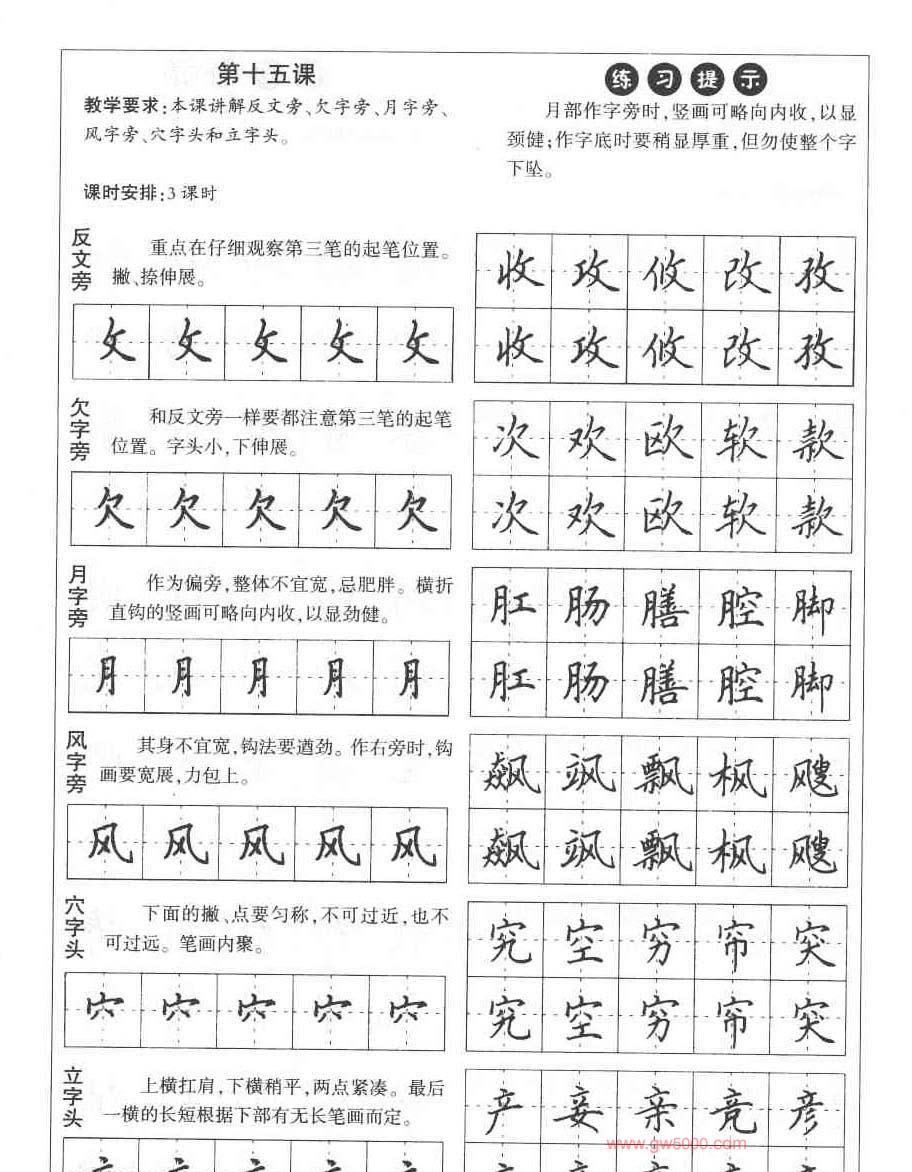 第十五课
教学要求:本课讲解反文旁、欠字旁、月字旁、
风字旁、穴字头和立字头。
课时安排:3课时
练习提示
月部作字旁时,竖画可略向内收,以显
颈健;作字底时要稍显厚重,但勿使整个字
下坠。
反文旁
重点在仔细观察第三笔的起笔位置。
撇、捺伸展。
攵攵攵攵攵
收攻攸改孜
收攻攸改孜
欠字旁
和反文旁一样要都注意第三笔的起笔
位置。字头小,下伸展。
欠欠欠欠欠
次欢欧软款
次欢欧软款
月字旁
作为偏旁,整体不宜宽,忌肥胖。横折
直钩的竖画可略向内收,以显劲健。
月月月月月
肛肠膳腔脚
肛肠膳腔脚
风字旁
其身不宜宽,钩法要遒劲。作右旁时,钩
画要宽展,力包上。
风风风风风
飙飒飘枫飕
飙飒飘枫飕
穴字头
下面的撇、点要匀称,不可过近,也不
可过远。笔画内聚。
穴穴穴穴穴
究空穷帘突
究空穷帘突
立字头
上横扛肩,下横稍平,两点紧凑。最后
一横的长短根据下部有无长笔画而定。
产妾亲竞彦
www.gw5000.com